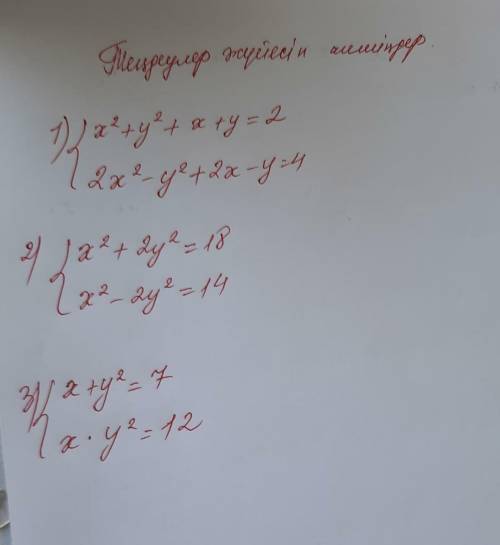 Теңдеулер жүйесін шешіңдер.
1) { x² + y² + x + y = 2
2x² - y² + 2x - y = 4
2) { x² + 2y² = 18
x² - 2y² = 14
3) { x + y² = 7
x · y² = 12